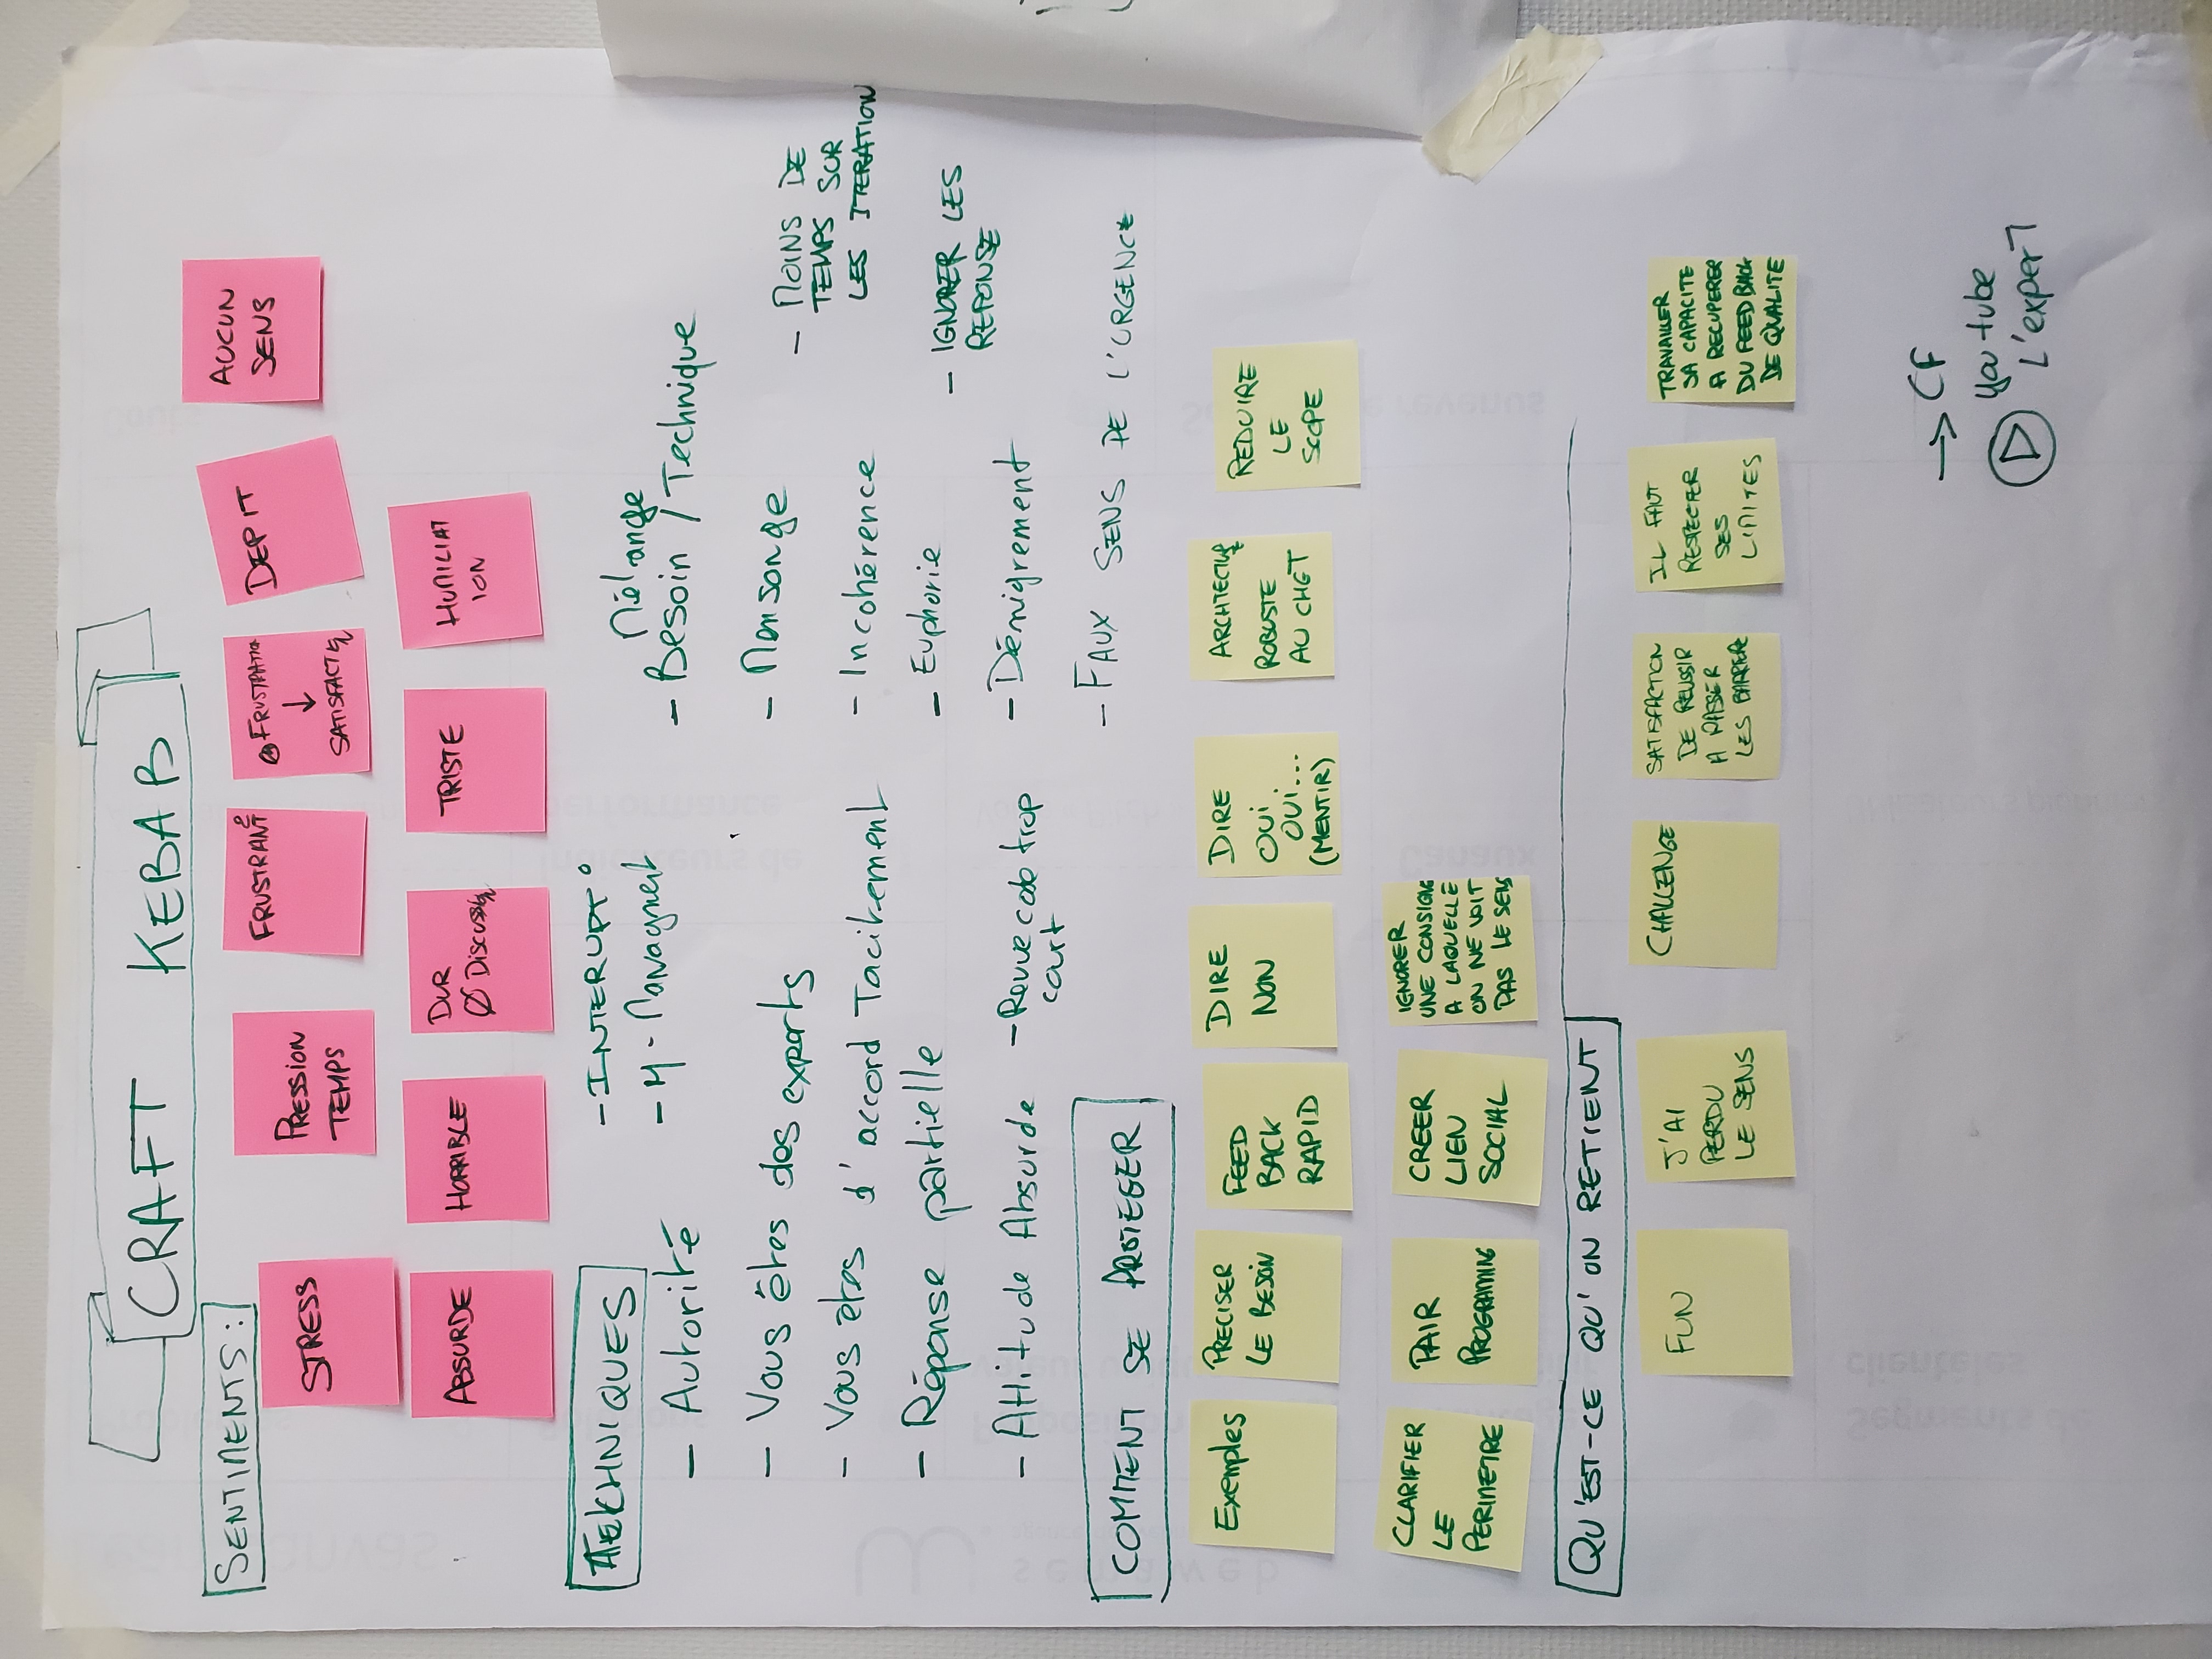 CRAFT KEBAB
SENTIMENTS :
STRESS
PRESSION
TEMPS
FRUSTRANT 2
FRUSTRATION
↓
SATISFACTION
DEPIT
AUCUN
SENS
ABSURDE
HORRIBLE
DUR
Ø DISCUSSION
TRISTE
HUMILIAT
ION
TEKHNIQUES
- INTERUPT°
- M - Managment
- Autorité
- Vous êtes des experts
- Vous êtes d'accord Tacitement
- Réponse partielle
- Attitude Absurde
- Revue code trop
court
Mélange
- Besoin / Technique
- Mensonge
- Incohérence
- Euphorie
- Dénigrement
- FAUX SENS DE L'URGENCE
- MOINS DE
TEMPS SUR
LES ITERATION
- IGNORER LES
REPONSE
COMMENT SE PROTEGER
Exemples
PRECISER
LE BESOIN
FEED
BACK
RAPID
DIRE
NON
DIRE
OUI
OUI...
(MENTIR)
ARCHITECTURE
ROBUSTE
AU CHGT
REDUIRE
LE
SCOPE
CLARIFIER
LE
PERIMETRE
PAIR
PROGRAMING
CREER
LIEN
SOCIAL
IGNORER
UNE CONSIGNE
A LAQUELLE
ON NE VOIT
PAS LE SENS
QU'EST-CE QU'ON RETIENT
FUN
J'AI
PERDU
LE SENS
CHALLENGE
SATISFACTION
DE REUSSIR
A PASSER
LES BARRIERE
IL FAUT
RESPECTER
SES
LIMITES
TRAVAILLER
SA CAPACITE
A RECUPERER
DU FEED BACK
DE QUALITE
→ CF
youtube
L'expert